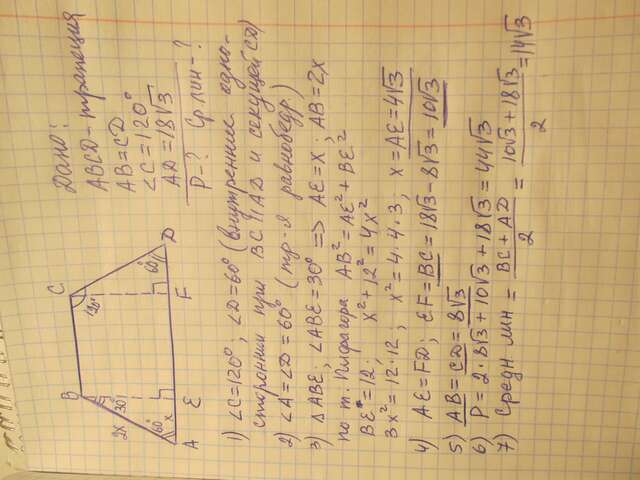 Дано:
ABCD - трапеция
AB = CD
∠C = 120°
AD = 18√3
P-? Ср лин-?
B
C
120°
2x
30°
60°
x
60°
A
E
F
D
1) ∠C=120°, ∠D=60° (внутренние одно-
сторонни при BC || AD и секущей CD)
2) ∠A=∠D=60° (тр-я равнобедр)
3) △ABE; ∠ABE=30° => AE=x; AB=2x
по т. Пифагора AB²=AE²+BE²
BE=12; x²+12²=4x²
3x²=12·12; x²=4·4·3; x=AE=4√3
4) AE=FD; EF=BC=18√3-8√3=10√3
5) AB=CD=8√3
6) P=2·8√3+10√3+18√3=44√3
7) Средн лин = BC+AD/2 = 10√3+18√3/2 =14√3